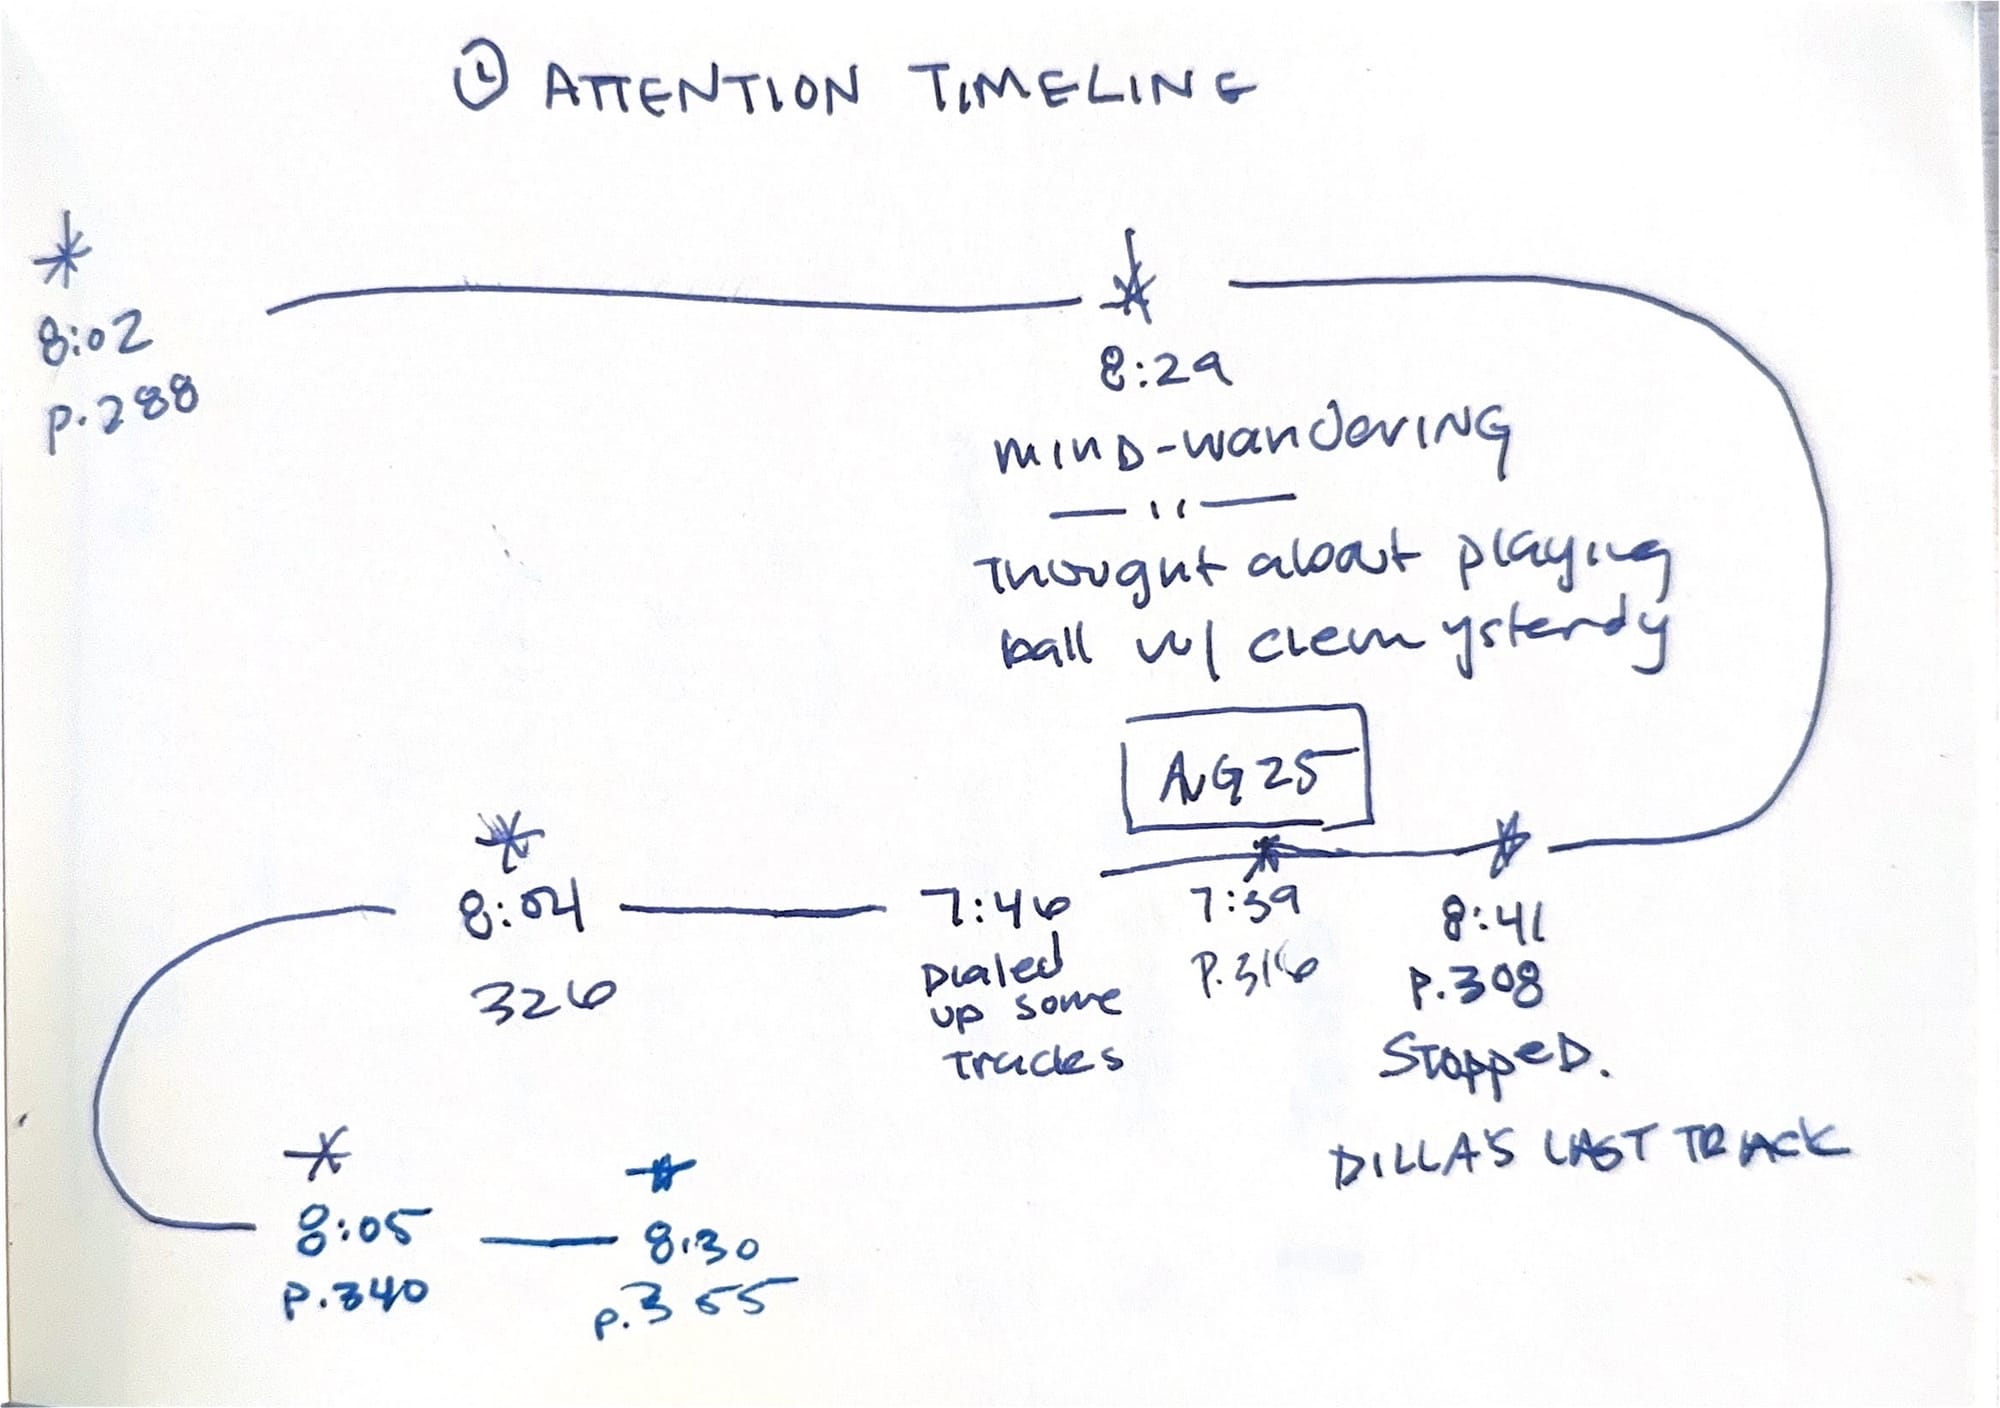 ATTENTION TIMELINE
8:02
p.288
8:29
MIND-wandering
— " —
Thought about playing
ball w/ clem ysterdy
AUG 25
8:41
p.308
Stopped.
DILLA'S LAST TRACK
7:39
P.316
7:46
Dialed
up some
Tracks
8:04
326
8:05
p.340
8:30
p.355